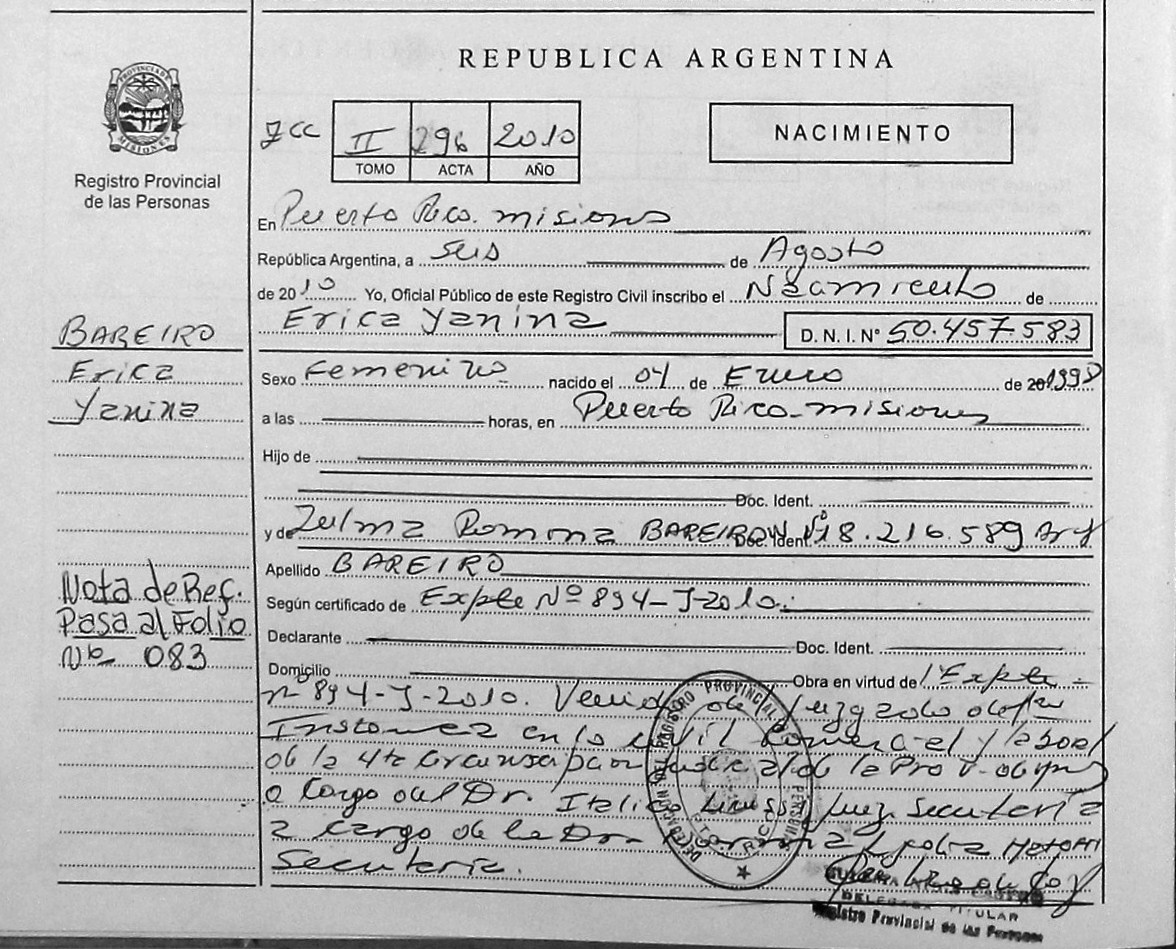 REPUBLICA ARGENTINA
PROVINCIA DE MISIONES
Registro Provincial
de las Personas
II 296 2010
TOMO ACTA AÑO
NACIMIENTO
En Puerto Rico. misiones
República Argentina, a seis de Agosto
de 2010 Yo, Oficial Público de este Registro Civil inscribo el Nacimiento de
Erica Yanina D. N. I. N° 50.457.583
BAREIRO
Erica
Yanina
Sexo Femenino nacido el 04 de Enero de
a las horas, en Puerto Rico - misiones
Hijo de
Doc. Ident.
y de Zulma Romina BAREIRO Doc. Ident. N° 18.216.589 Arg
Apellido BAREIRO
Según certificado de Expte Nº 894-J-2010.
Nota de Ref.
Pasa al Folio
Nº 083
Declarante Doc. Ident.
Domicilio Obra en virtud de Expte
nº 894-J-2010. Juzgado de
en lo civil Comercial y laboral
de la 4ta de la Prov. de
a Cargo del Dr. Juez, Secretaría
a cargo de la Dra
Secretaria.
DELEGADA TITULAR
Registro Provincial de las Personas